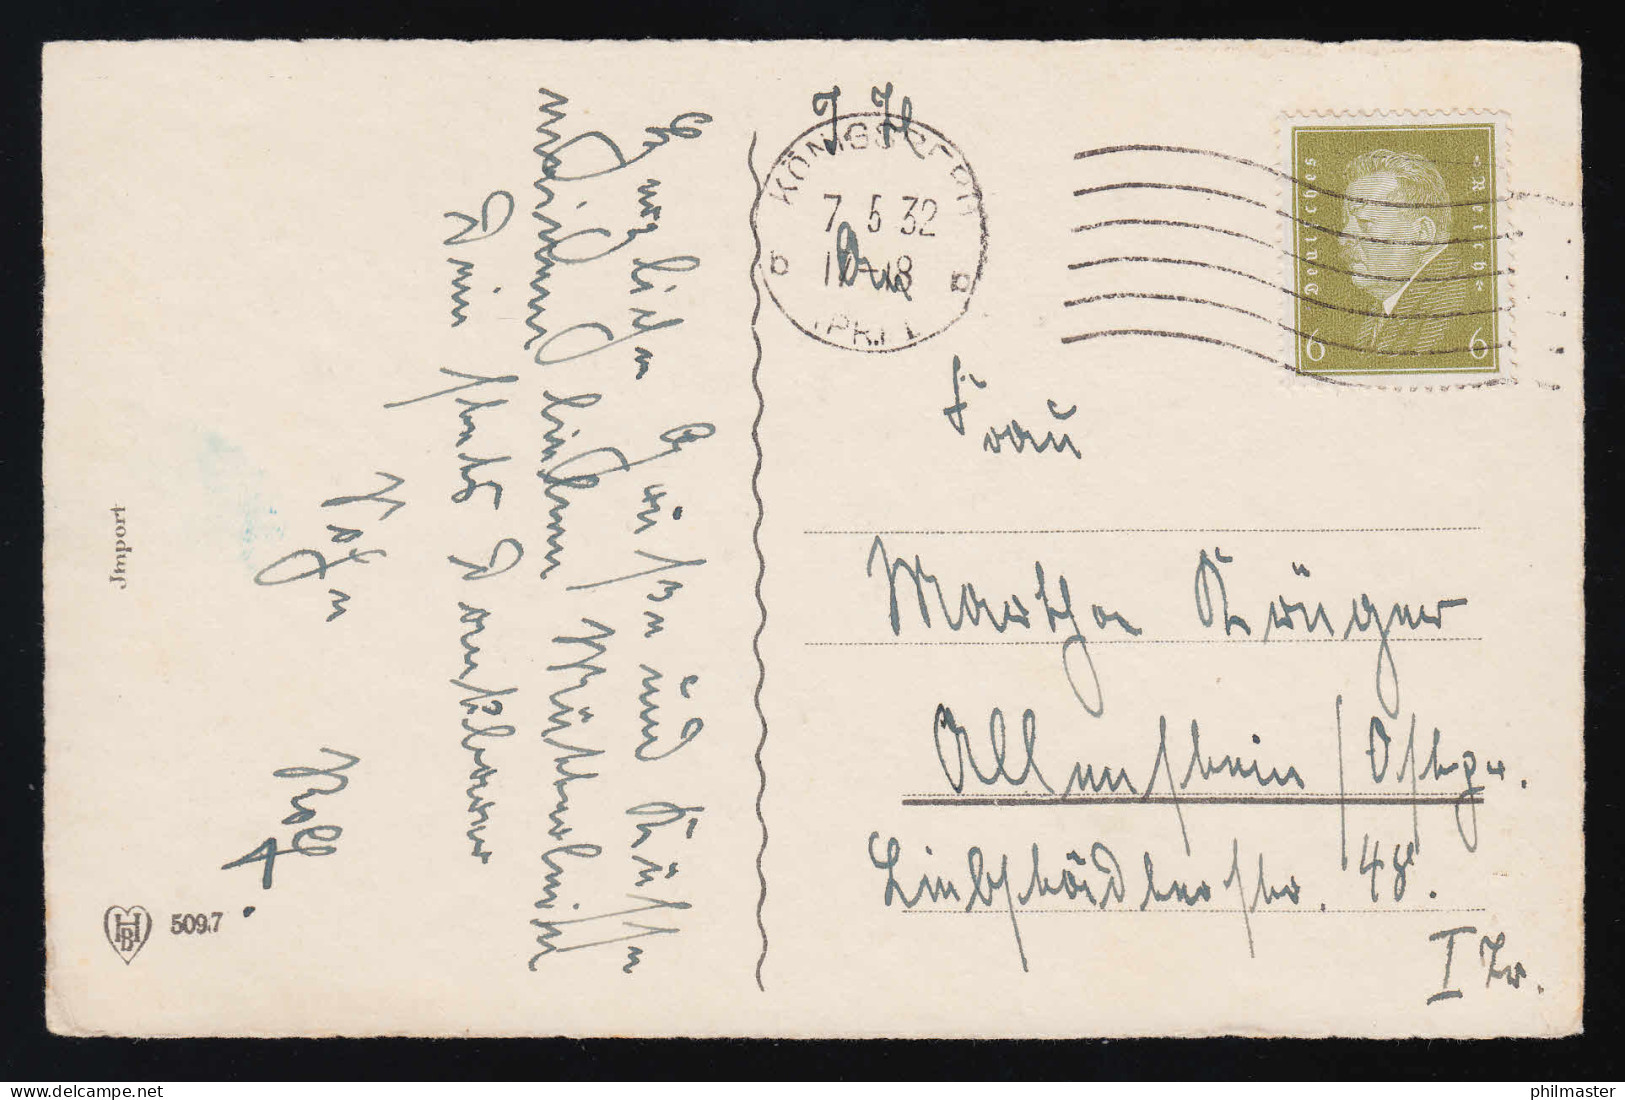 Herzlichen Grüßen und Küssen
meinem lieben Mütterlein
Dein stets dankbarer
Sohn
Rolf
Import
HB 509.7
KÖNIGSBERG
7 5 32
(PR.) 1
b b
An
Deutsches Reich
6 6
Frau
Martha Krüger
Allenstein / Ostpr.
Liebstädterstr. 48.
I Tr.
philmaster